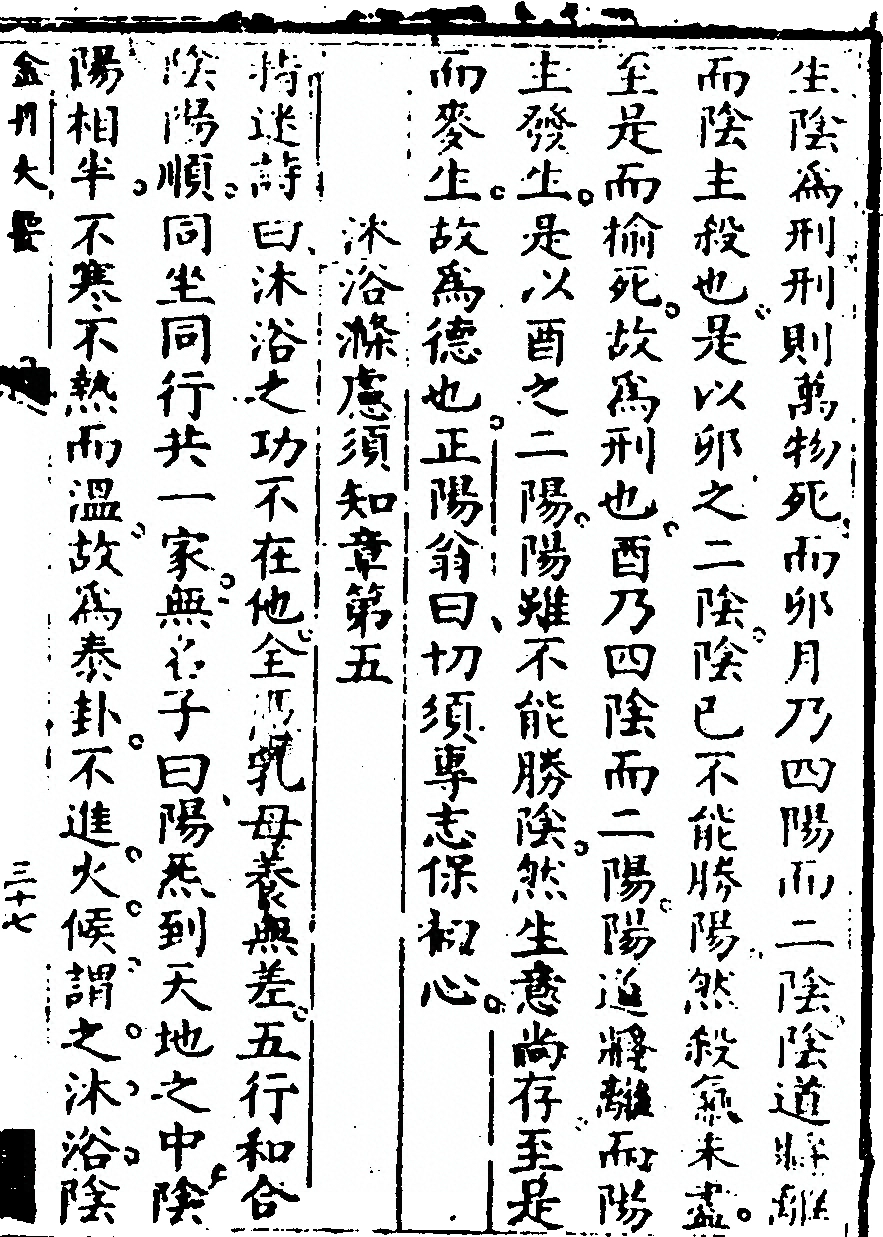 生陰爲刑刑則萬物死而卯月乃四陽而二陰陰道將離
而陰主殺也是以卯之二陰陰已不能勝陽然殺氣未盡
至是而榆死故爲刑也酉乃四陰而二陽陽道將離而陽
主發生是以酉之二陽陽雖不能勝陰然生意尚存至是
而麥生故爲德也正陽翁曰切須專志保初心
沐浴滌慮須知章第五
指迷詩曰沐浴之功不在他全憑乳母養無差五行和合
陰陽順同坐同行共一家無名子曰陽炁到天地之中陰
陽相半不寒不熱而溫故爲泰卦不進火候謂之沐浴陰
金丹大要
三十七